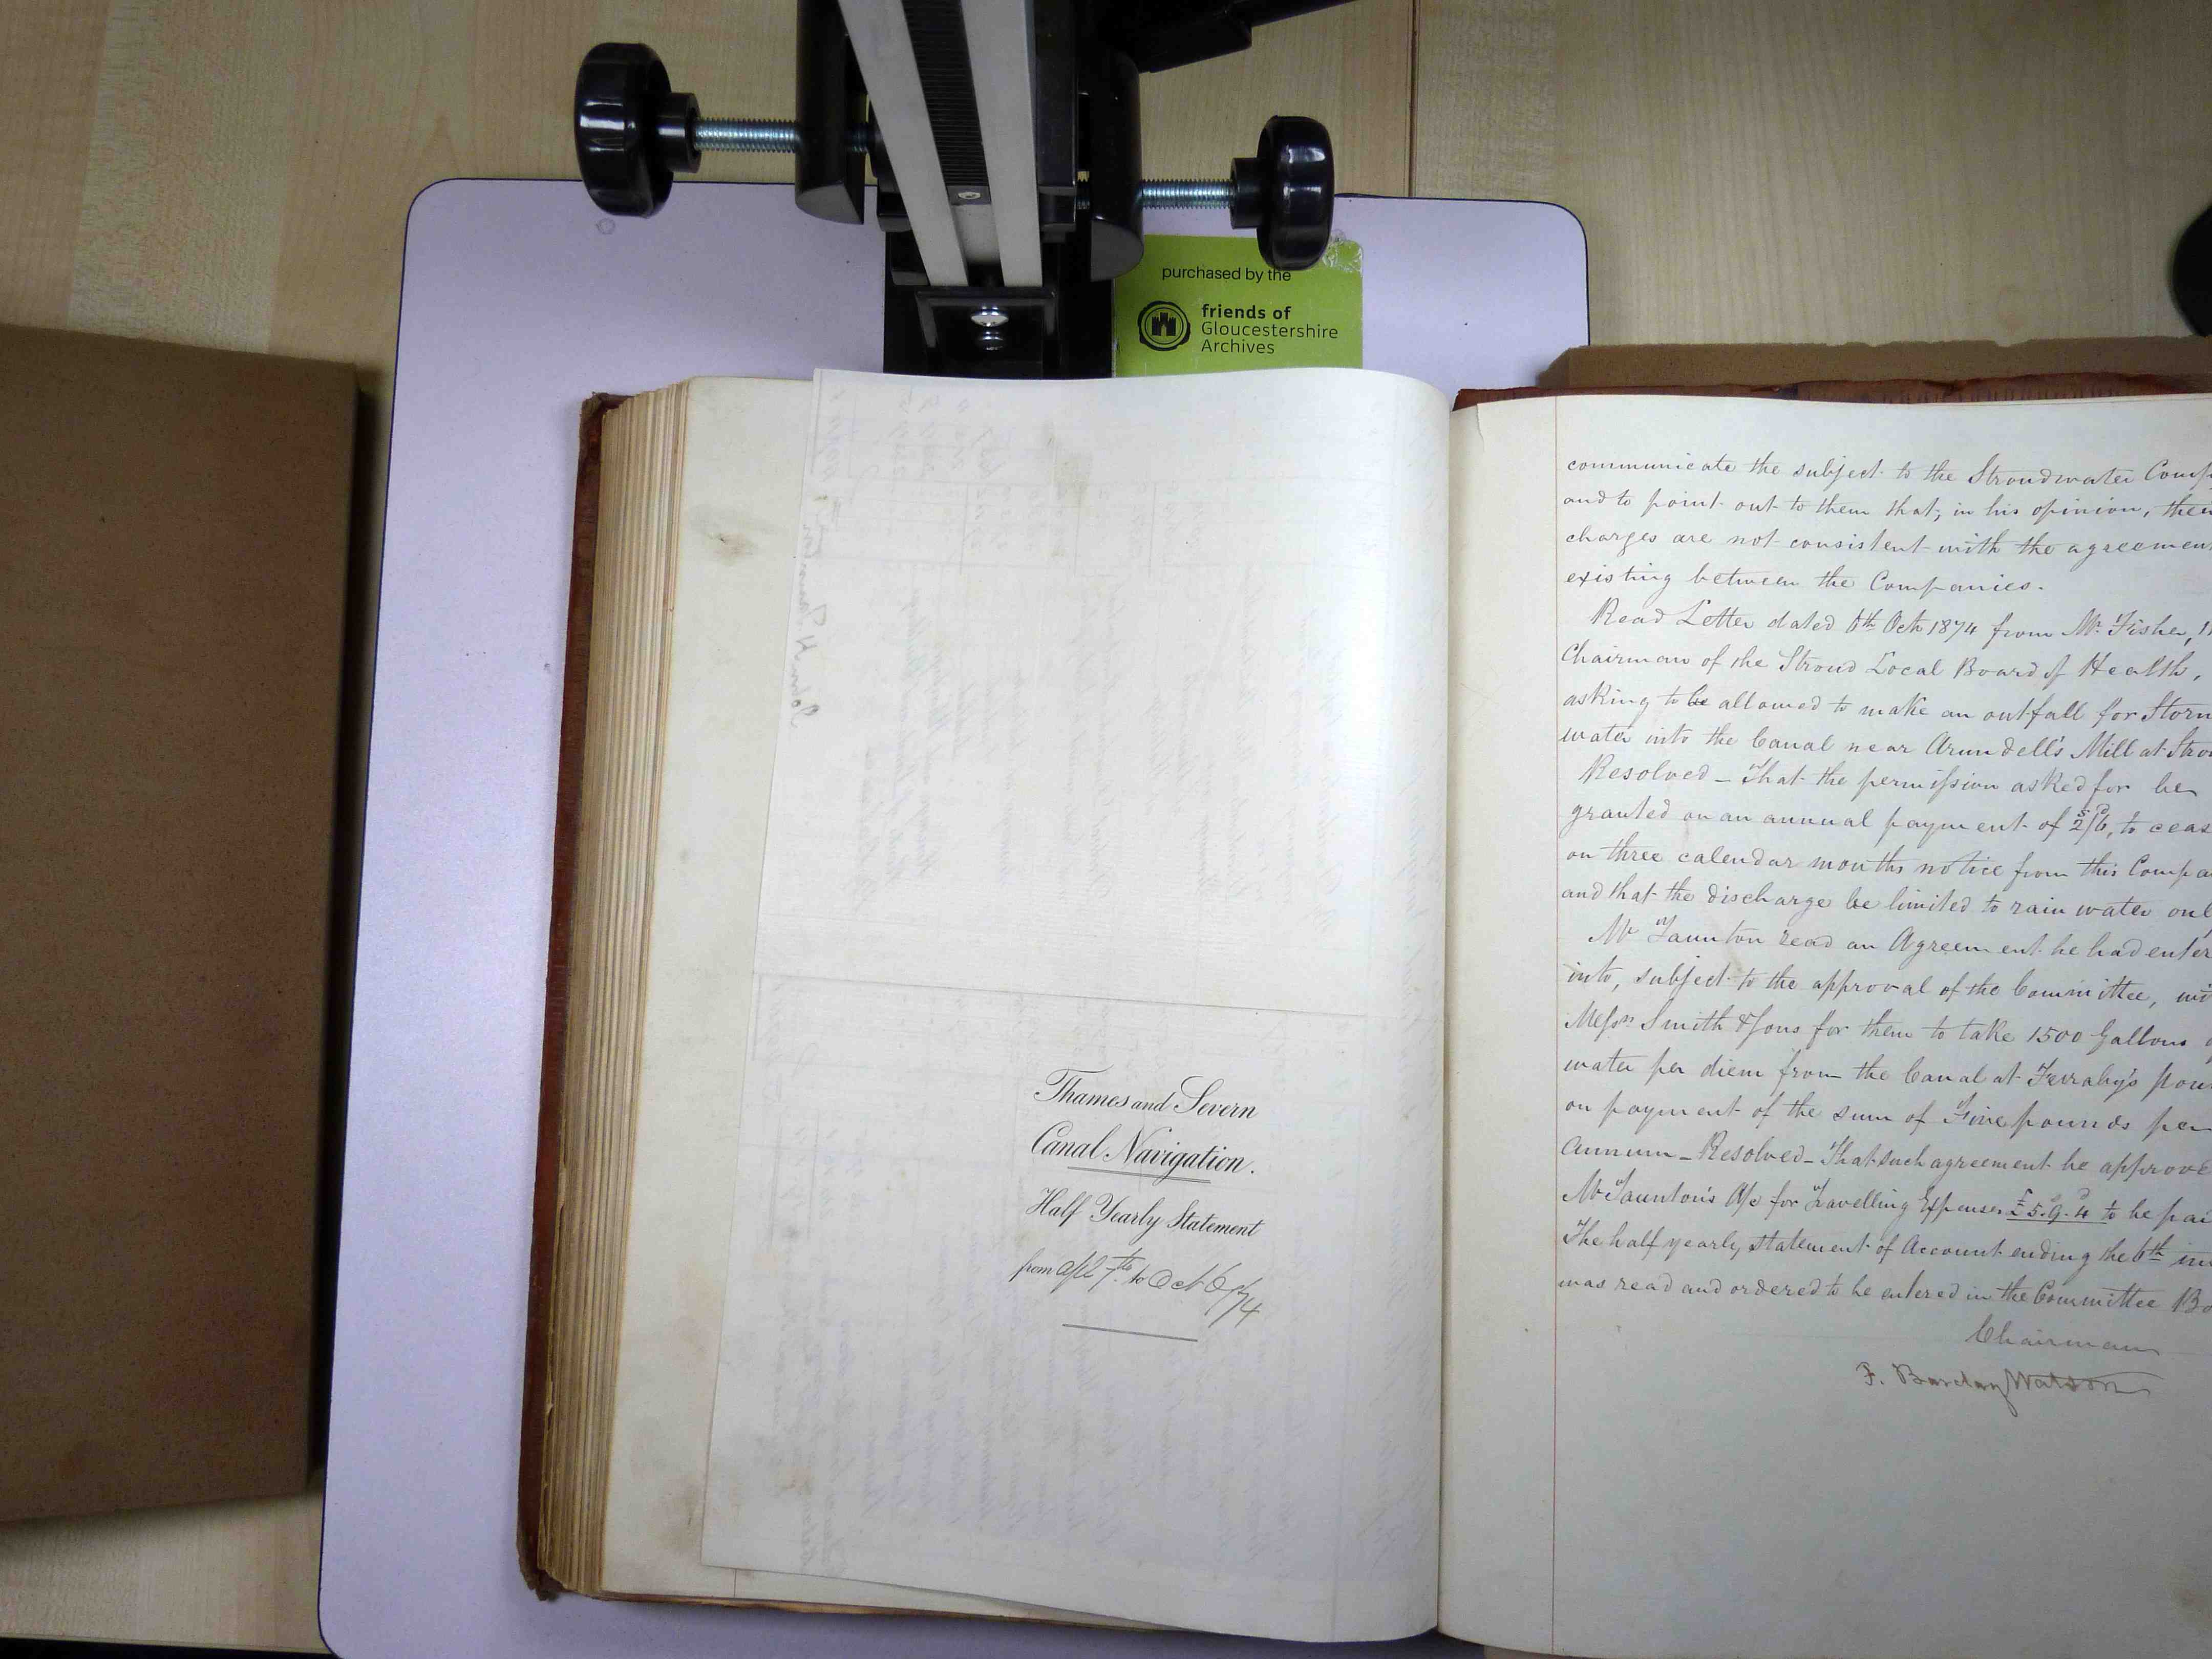 purchased by the
friends of
Gloucestershire
Archives
Thames and Severn
Canal Navigation.
Half Yearly Statement
from Apl 7th to Oct 6/74
communicate the subject to the Stroudwater Comp
and to point out to them that, in his opinion, their
charges are not consistent with the agreement
existing between the Companies.
Read Letter dated 6th Oct 1874 from Mr. Fisher,
Chairman of the Stroud Local Board of Health,
asking to be allowed to make an outfall for Storm
water into the Canal near Arundell's Mill at Strou
Resolved - That the permission asked for be
granted on an annual payment of 2s/6d, to ceas
on three calendar months notice from this Compa
and that the discharge be limited to rain water onl
Mr Taunton read an Agreement he had enter
into, subject to the approval of the Committee, wi
Messrs Smith & Sons for them to take 1500 Gallons
water per diem from the Canal at Ferraby's poun
on payment of the sum of Five pounds per
Annum - Resolved - That such agreement be approve
Mr Taunton's A/c for Travelling Expenses £5.9.4 to be pai
The half yearly statement of Account ending the 6th in
was read and ordered to be entered in the Committee Bo
Chairman
F. Barclay Watson